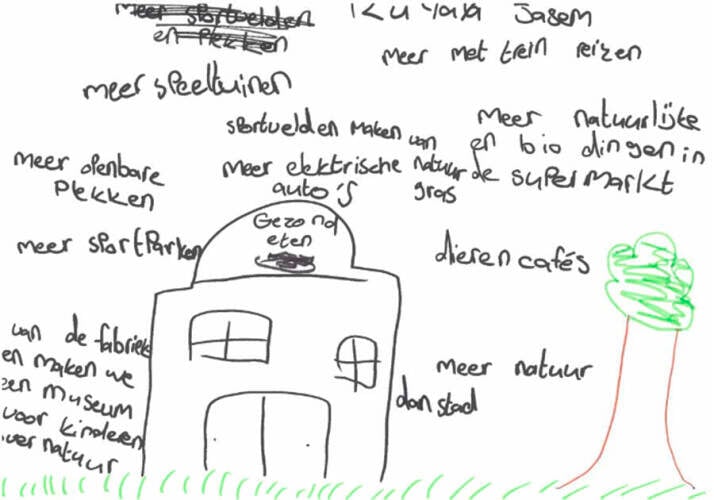 Meer sportvelden
en plekken
Jasem
meer met trein reizen
meer speeltuinen
sportvelden maken van
natuur
gras
Meer natuurlijke
en bio dingen in
de supermarkt
meer openbare
plekken
meer elektrische
auto's
Gezond
eten
meer sportparken
dieren cafés
van de fabriek
en maken we
een museum
voor kinderen
over natuur
meer natuur
dan stad